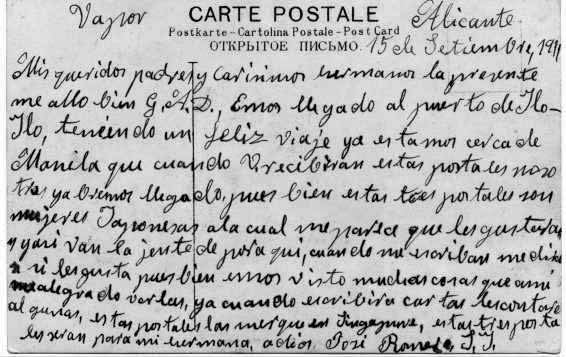 Vapor CARTE POSTALE Alicante
Postkarte – Cartolina Postale – Post Card
ОТКРЫТОЕ ПИСЬМО. 15 de Setiembre, 1911
Mis queridos padres y Carinños hermanos la presente
me allo bien G. A. D., Emos llegado al puerto de Ilo-
Ilo, teniendo un feliz viaje ya estamos cerca de
Manila que cuando V recibiran estas portales noso
tros ya bremos llegado, pues bien estas tres portales son
mujeres Japonesas a la cual me parece que les gustara
y yari van la jente de pora qui, cuando me escriban me diran
si les gusta pues bien emos visto muchas cosas que a mi
me alegrado verlas, ya cuando escribire cartas les contare
algunas, estas portales las merque en Singapure, estas tres porta
les seran para mi hermana, adios. José